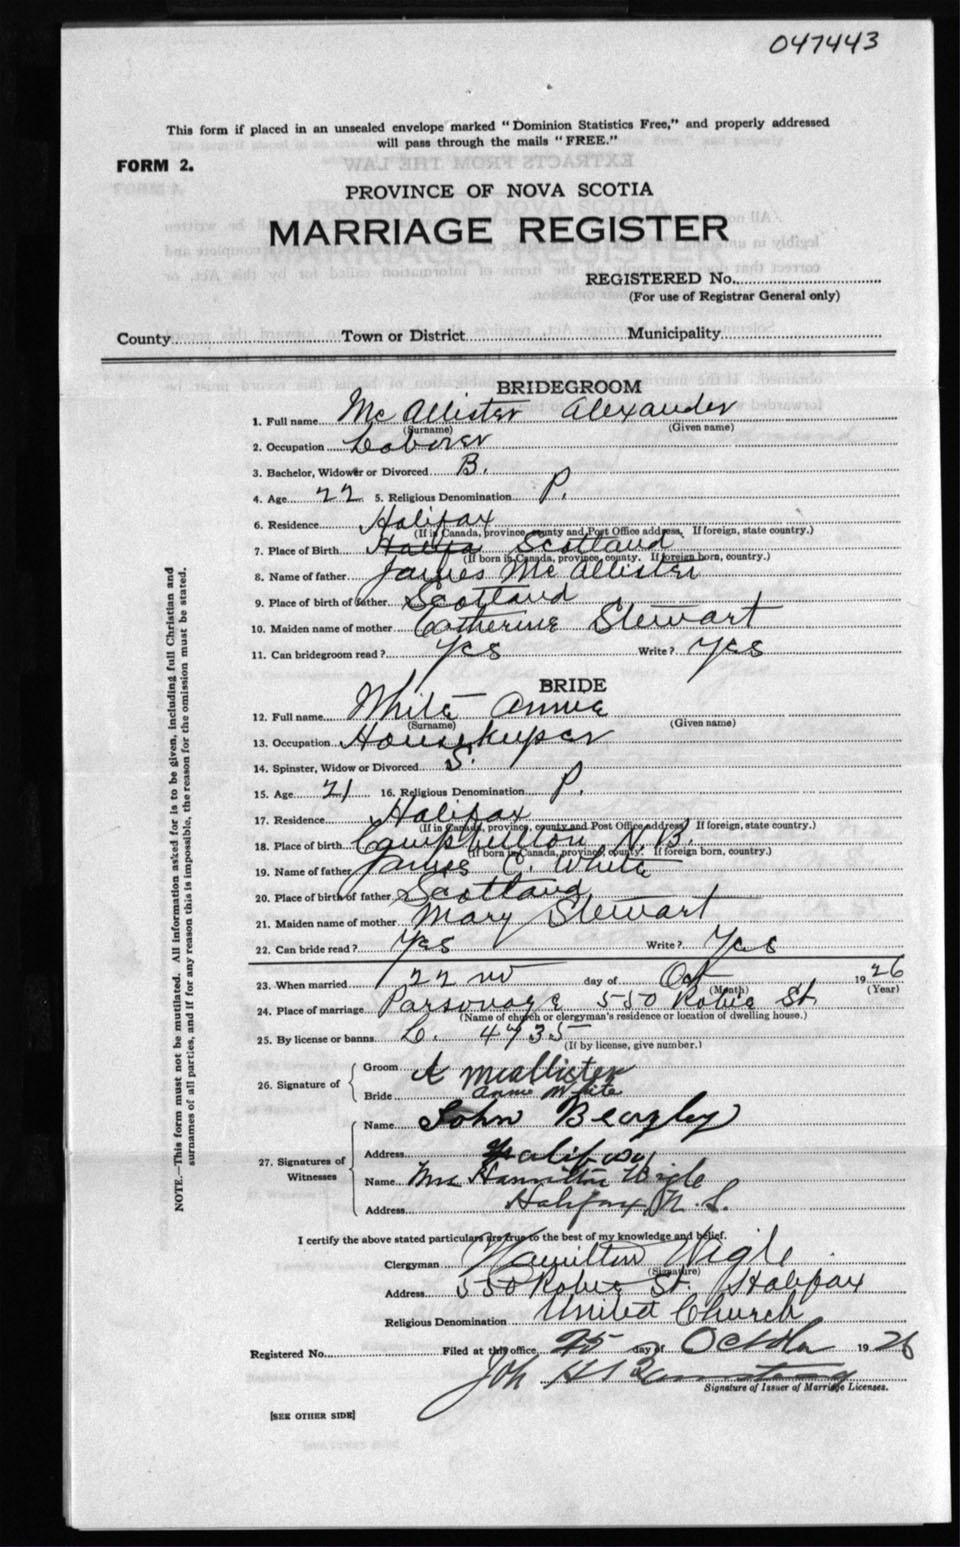 047443
This form if placed in an unsealed envelope marked "Dominion Statistics Free," and properly addressed
will pass through the mails "FREE."
FORM 2.
PROVINCE OF NOVA SCOTIA
MARRIAGE REGISTER
REGISTERED No.
(For use of Registrar General only)
County Town or District Municipality
BRIDEGROOM
1. Full name McAllister Alexander
(Surname) (Given name)
2. Occupation Laborer
3. Bachelor, Widower or Divorced B.
4. Age 22 5. Religious Denomination P.
6. Residence Halifax
(If in Canada, province, county and Post Office address. If foreign, state country.)
7. Place of Birth Scotland
(If born in Canada, province, county. If foreign born, country.)
8. Name of father James McAllister
9. Place of birth of father Scotland
10. Maiden name of mother Catherine Stewart
11. Can bridegroom read? Yes Write? Yes
BRIDE
12. Full name White Annie
(Surname) (Given name)
13. Occupation Housekeeper
14. Spinster, Widow or Divorced S.
15. Age 21 16. Religious Denomination P.
17. Residence Halifax
(If in Canada, province, county and Post Office address. If foreign, state country.)
18. Place of birth Campbellton N.B.
(If born in Canada, province, county. If foreign born, country.)
19. Name of father James C. White
20. Place of birth of father Scotland
21. Maiden name of mother Mary Stewart
22. Can bride read? Yes Write? Yes
23. When married 22nd day of Oct 1926
(Month) (Year)
24. Place of marriage Parsonage 550 Robie St.
(Name of church or clergyman's residence or location of dwelling house.)
25. By license or banns L. 4735
(If by license, give number.)
26. Signature of Groom A McAllister
Bride Annie White
27. Signatures of Witnesses
Name John Beazley
Address Halifax
Name Mrs Hamilton Wigle
Address Halifax, N.S.
I certify the above stated particulars are true to the best of my knowledge and belief.
Clergyman Hamilton Wigle
(Signature)
Address 550 Robie St. Halifax
Religious Denomination United Church
Registered No. Filed at this office, 25 day of October 1926
Signature of Issuer of Marriage Licenses.
[SEE OTHER SIDE]
NOTE.—This form must not be mutilated. All information asked for is to be given, including full Christian and
surnames of all parties, and if for any reason this is impossible, the reason for the omission must be stated.